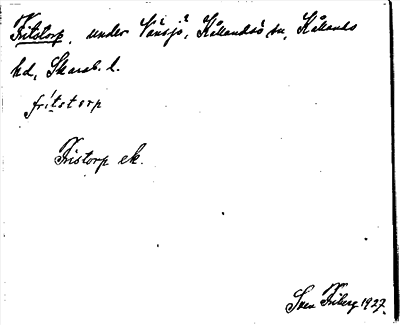 Fritstorp, under Vänsjö?, Kållandsö sn, Kållands
hd, Skarab. l.
frı́tstorp
Fristorp ek.
Sven Friberg 1927.